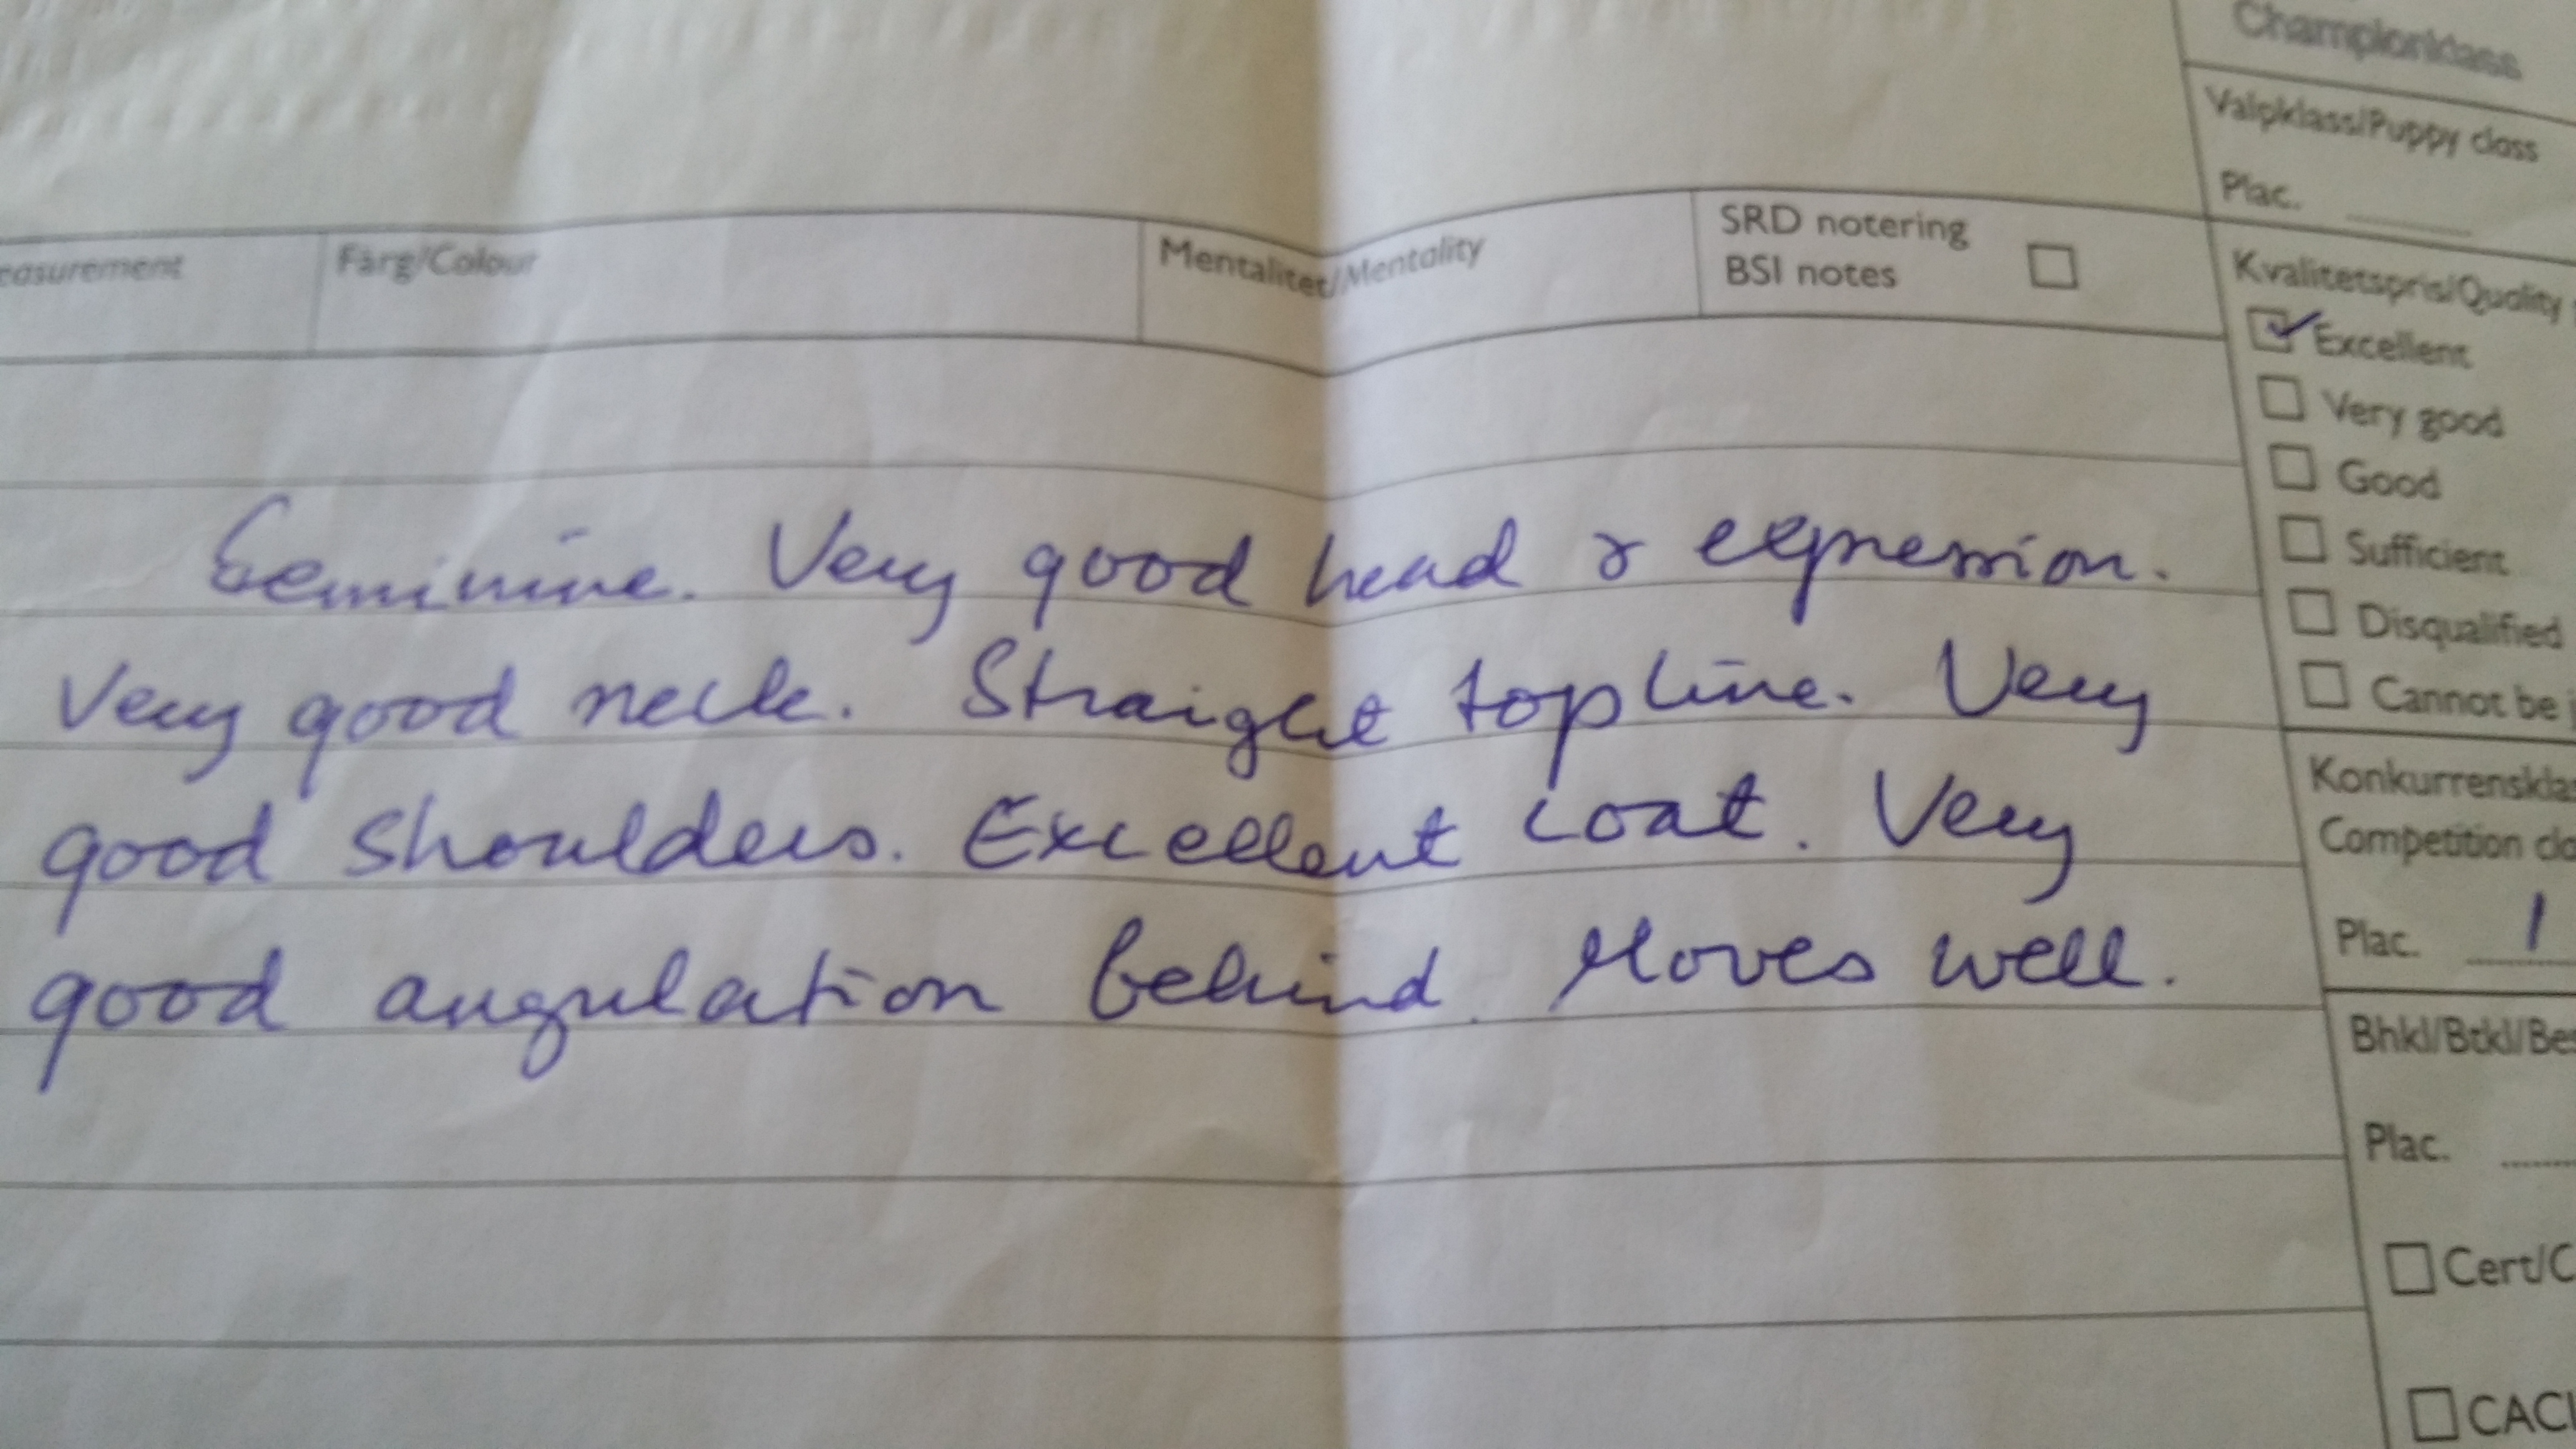 Championklass
Valpklass/Puppy class
Plac.
easurement
Färg/Colour
Mentalitet/Mentality
SRD notering
BSI notes
Kvalitetspris/Quality
Excellent
Very good
Good
Sufficient
Disqualified
Cannot be
Feminine. Very good head & expression.
Very good neck. Straight topline. Very
good shoulders. Excellent coat. Very
good angulation behind. Moves well.
Konkurrenskla
Competition cla
Plac. 1
Bhkl/Btkl/Bes
Plac.
Cert/C
CACI